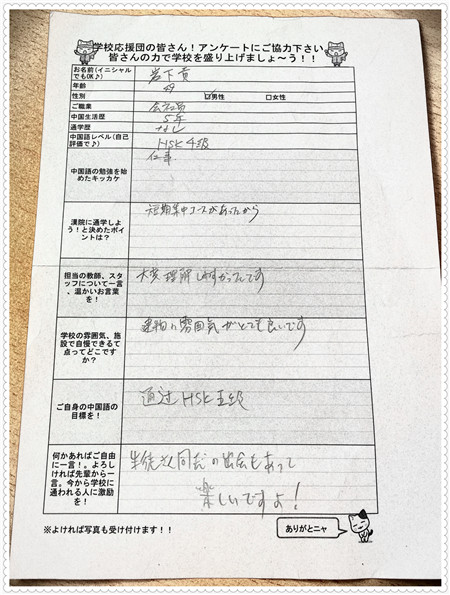 学校応援団の皆さん!アンケートにご協力下さい
皆さんの力で学校を盛り上げましょ〜う!!
お名前(イニシャルでもOK♪)
岩下 貴
年齢
性別
☑男性 □女性
ご職業
会社員
中国生活歴
5年
通学歴
なし
中国語レベル(自己評価で♪)
HSK 4級
中国語の勉強を始めたキッカケ
仕事
漢院に通学しよう!と決めたポイントは?
短期集中コースがあったから
担当の教師、スタッフについて一言、温かいお言葉を!
大変理解しやすかったです
学校の雰囲気、施設で自慢できるて点ってどこですか?
建物の雰囲気がとても良いです
ご自身の中国語の目標を!
通过 HSK 五级
何かあればご自由に一言!。よろしければ先輩から一言。今から学校に通われる人に激励を!
生徒さん同志の出会もあって
楽しいですよ!
※よければ写真も受け付けます!!
ありがとニャ